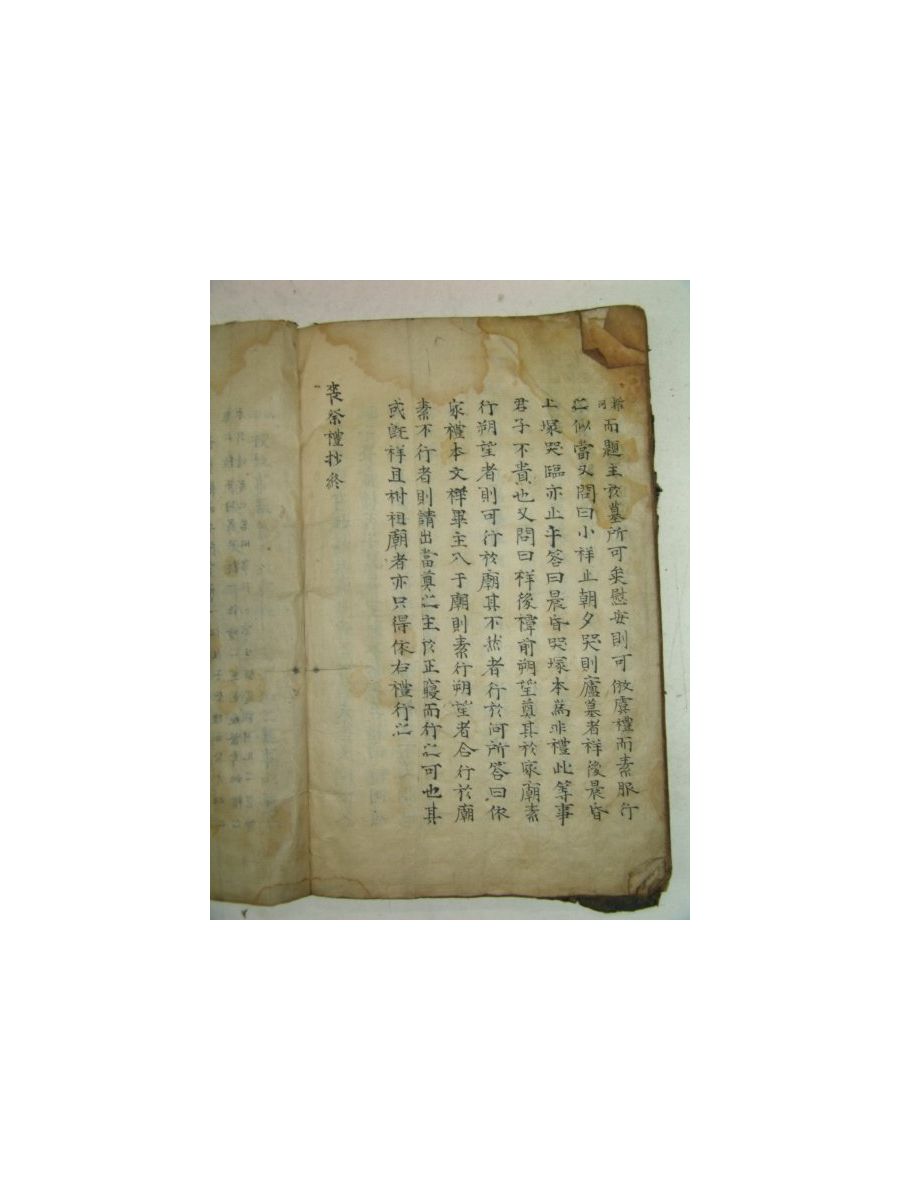 而題主於墓所可矣慰安則可倣虞禮而素服行
之似當又問曰小祥止朝夕哭則廬墓者祥後晨昏
上塚哭臨亦止乎答曰晨昏哭塚本爲非禮此等事
君子不貴也又問曰祥後禫前朔望奠其於家廟素
行朔望者則可行於廟其不然者行於何所答曰依
家禮本文祥畢主入于廟則素行朔望者合行於廟
素不行者則請出當奠之主於正寢而行之可也其
或旣祥且祔祖廟者亦只得依右禮行之
喪祭禮抄終